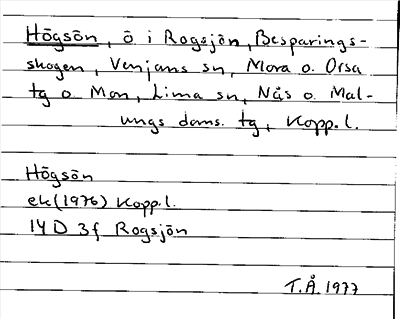 Högsön, ö i Rogsjön, Besparings-
skogen, Venjans sn, Mora o. Orsa
tg o Mon, Lima sn, Nås o. Mal-
ungs doms. tg, Kopp.l.
Högsön
ek (1976) Kopp.l.
14 D 3f Rogsjön
T.Å. 1977